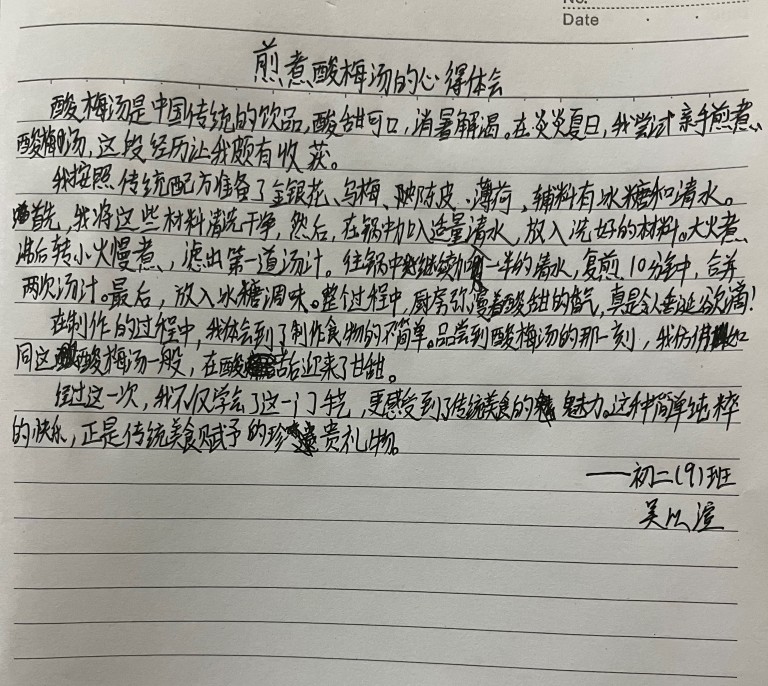 No.
Date
煎煮酸梅汤的心得体会
酸梅汤是中国传统的饮品,酸甜可口,消暑解渴。在炎炎夏日,我尝试亲手煎煮
酸梅汤,这段经历让我颇有收获。
我按照传统配方准备了金银花、乌梅、陈皮、薄荷,辅料有冰糖和清水。
首先,我将这些材料清洗干净,然后,在锅中加入适量清水,放入洗好的材料。大火煮
沸后转小火慢煮,滤出第一道汤汁。往锅中继续加一半的清水,复煎10分钟,合并
两次汤汁。最后,放入冰糖调味。整个过程中,厨房弥漫着酸甜的香气,真是令人垂涎欲滴!
在制作的过程中,我体会到了制作食物的不简单。品尝到酸梅汤的那一刻,我仿佛如
同这酸梅汤一般,在酸苦后迎来了甘甜。
经过这一次,我不仅学会了这一门手艺,更感受到了传统美食的魅力。这种简单纯粹
的快乐,正是传统美食赋予的珍贵礼物。
——初二(9)班
吴以渲